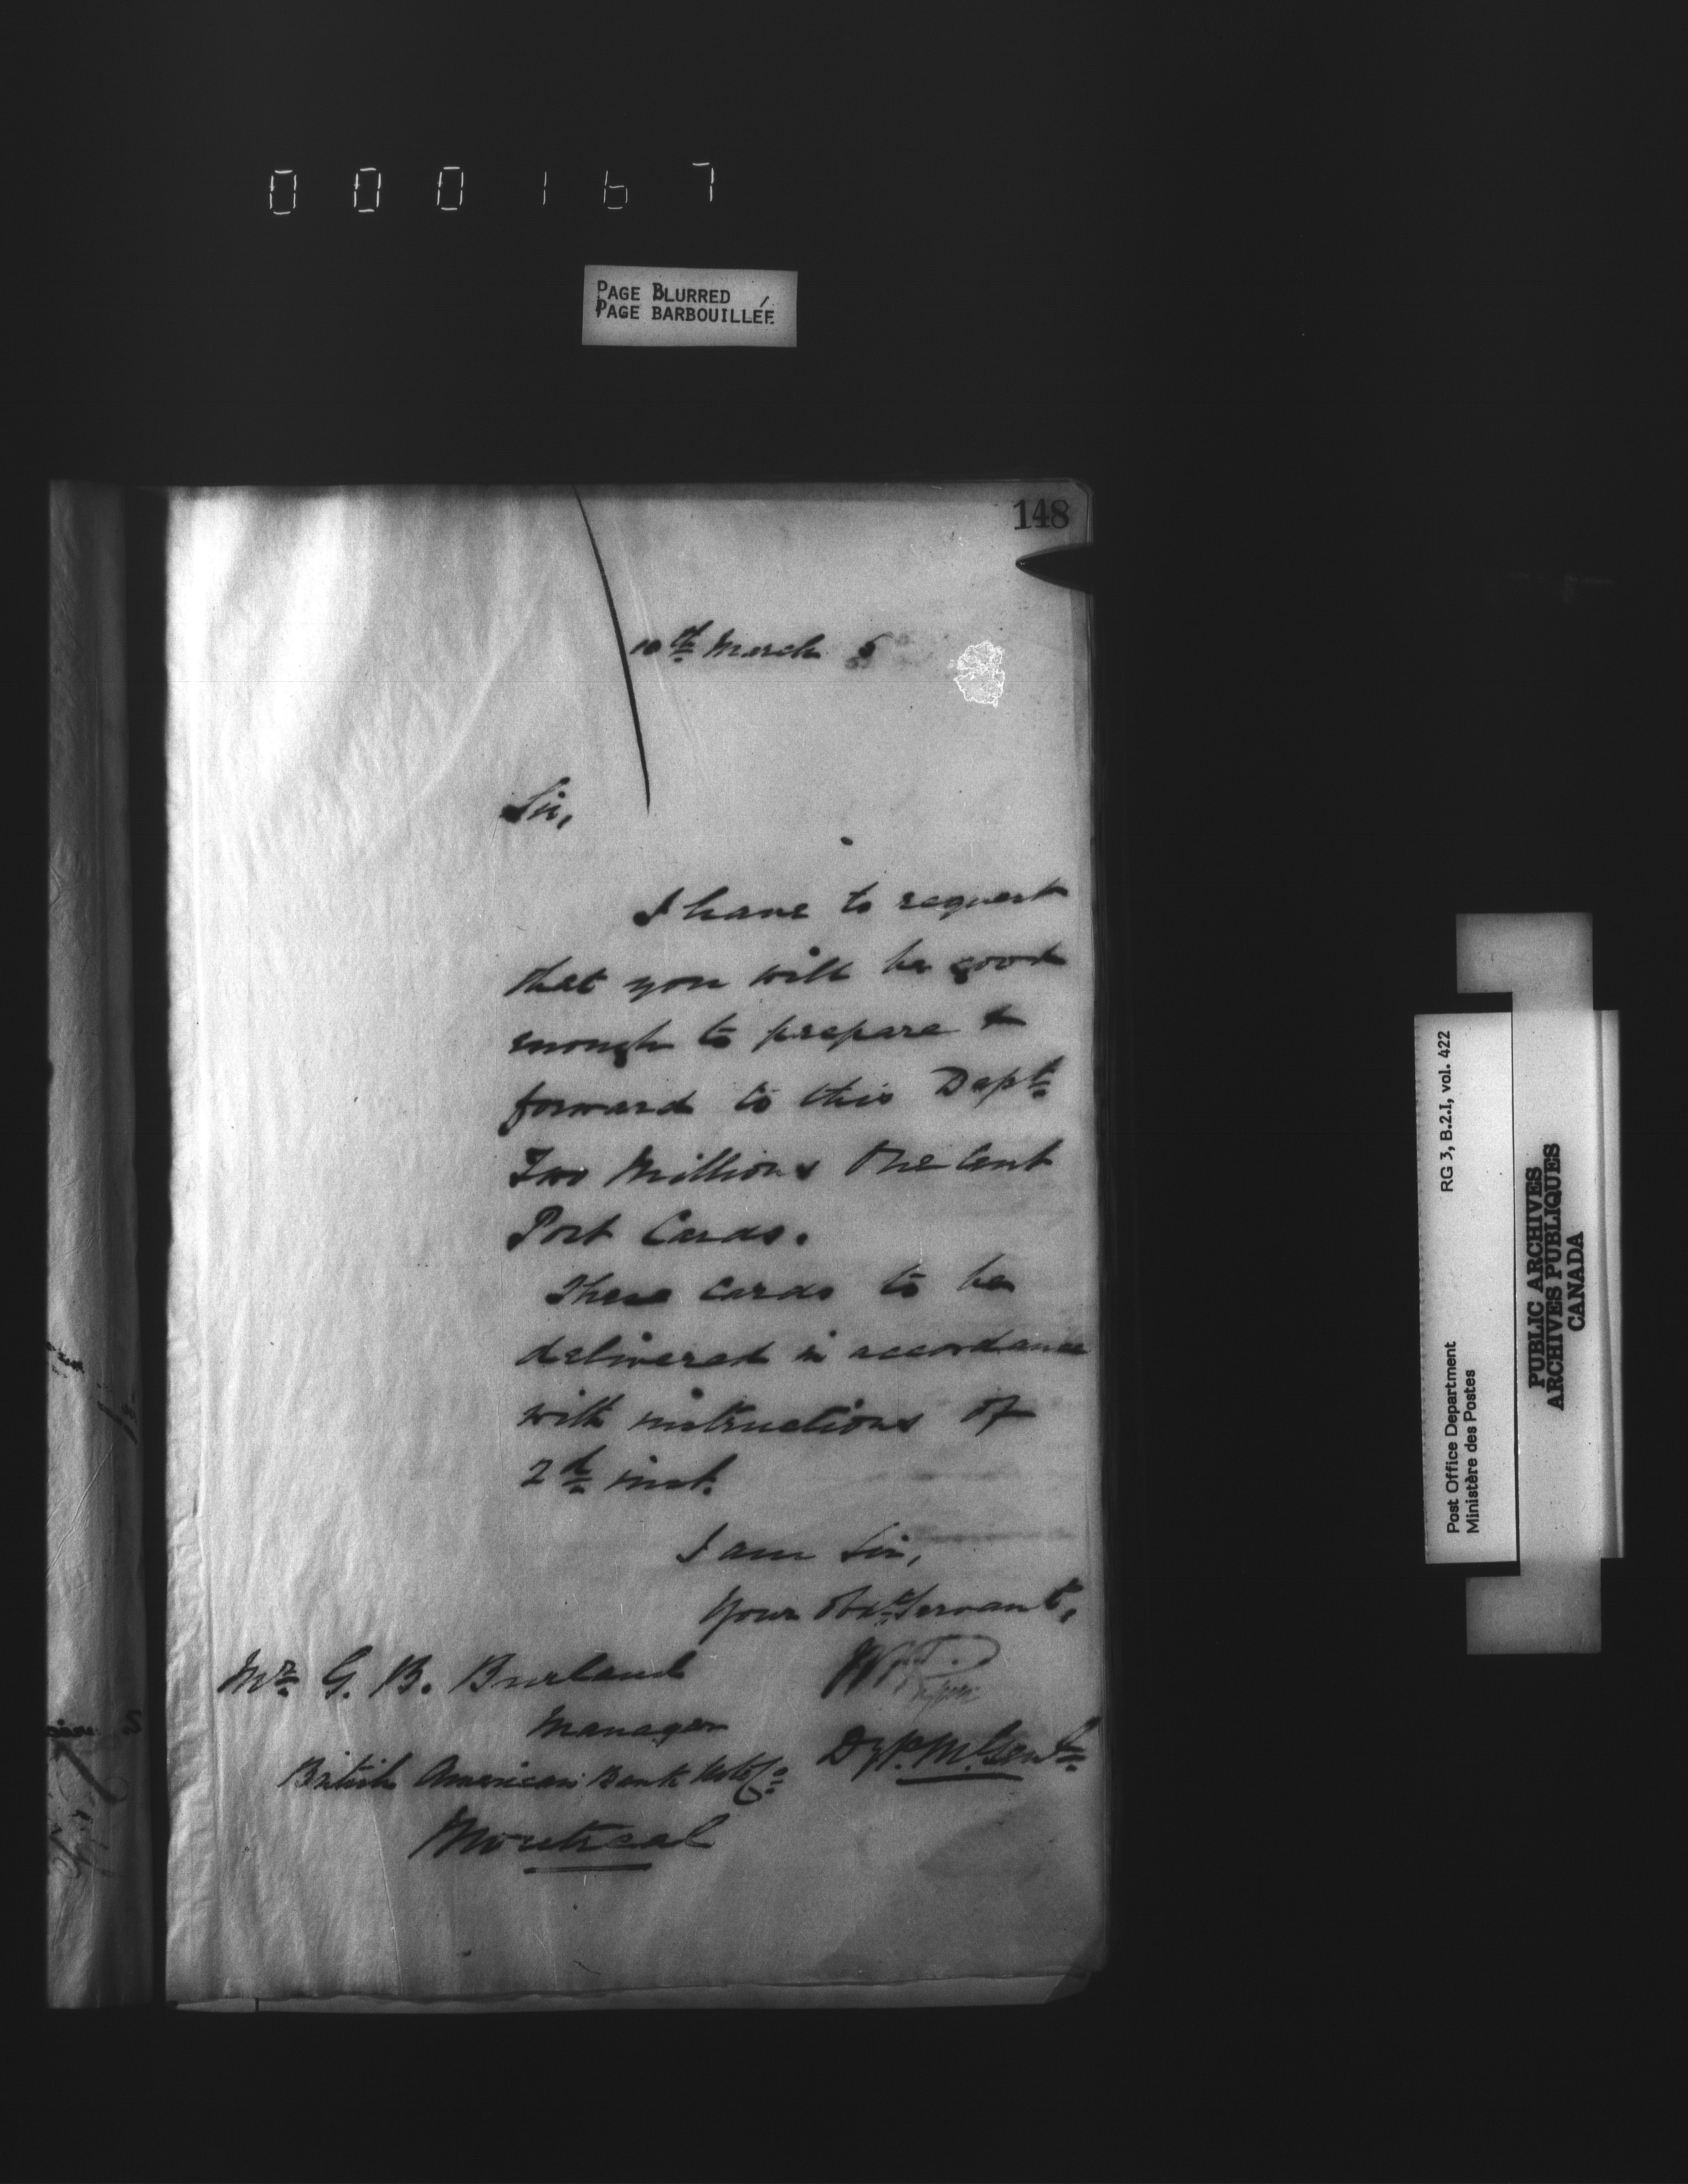 000167
PAGE BLURRED
PAGE BARBOUILLÉE
148
10th March 5
Sir,
I have to request
that you will be good
enough to prepare &
forward to this Dept.
Two Millions One Cent
Post Cards.
These cards to be
delivered in accordance
with instructions of
2d inst.
I am Sir,
Your Obt. Servant,
Mr. G. B. Burland
Manager
British American Bank Note Co.
Montreal
Dy P. M. Genl.
RG 3, B.2.I, vol. 422
Post Office Department
Ministère des Postes
PUBLIC ARCHIVES
ARCHIVES PUBLIQUES
CANADA